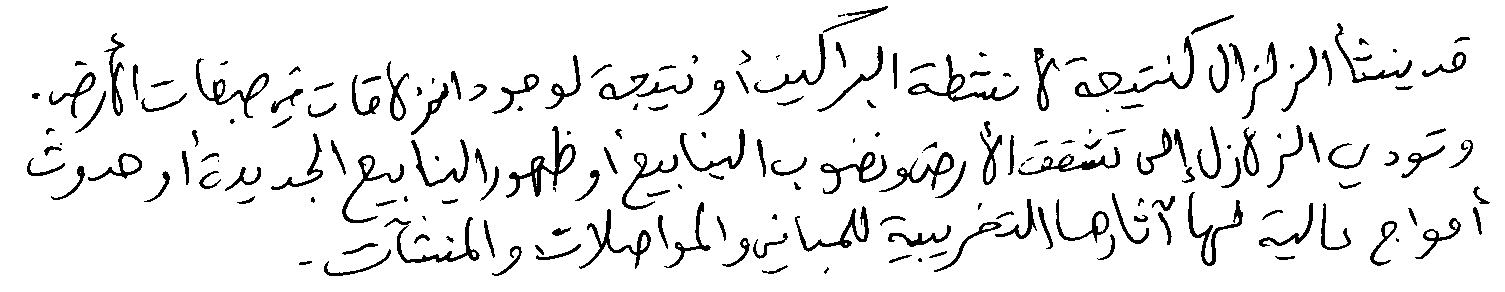 قد ينشأ الزلزال كنتيجة لأنشطة البراكين أو نتيجة لوجود انزلاقات في طبقات الأرض.
وتودي الزلازل إلى تشقق الأرض ونضوب الينابيع أو ظهور الينابيع الجديدة أو حدوث
أمواج عالية لها آثارها التخريبية للمباني والمواصلات والمنشآت.